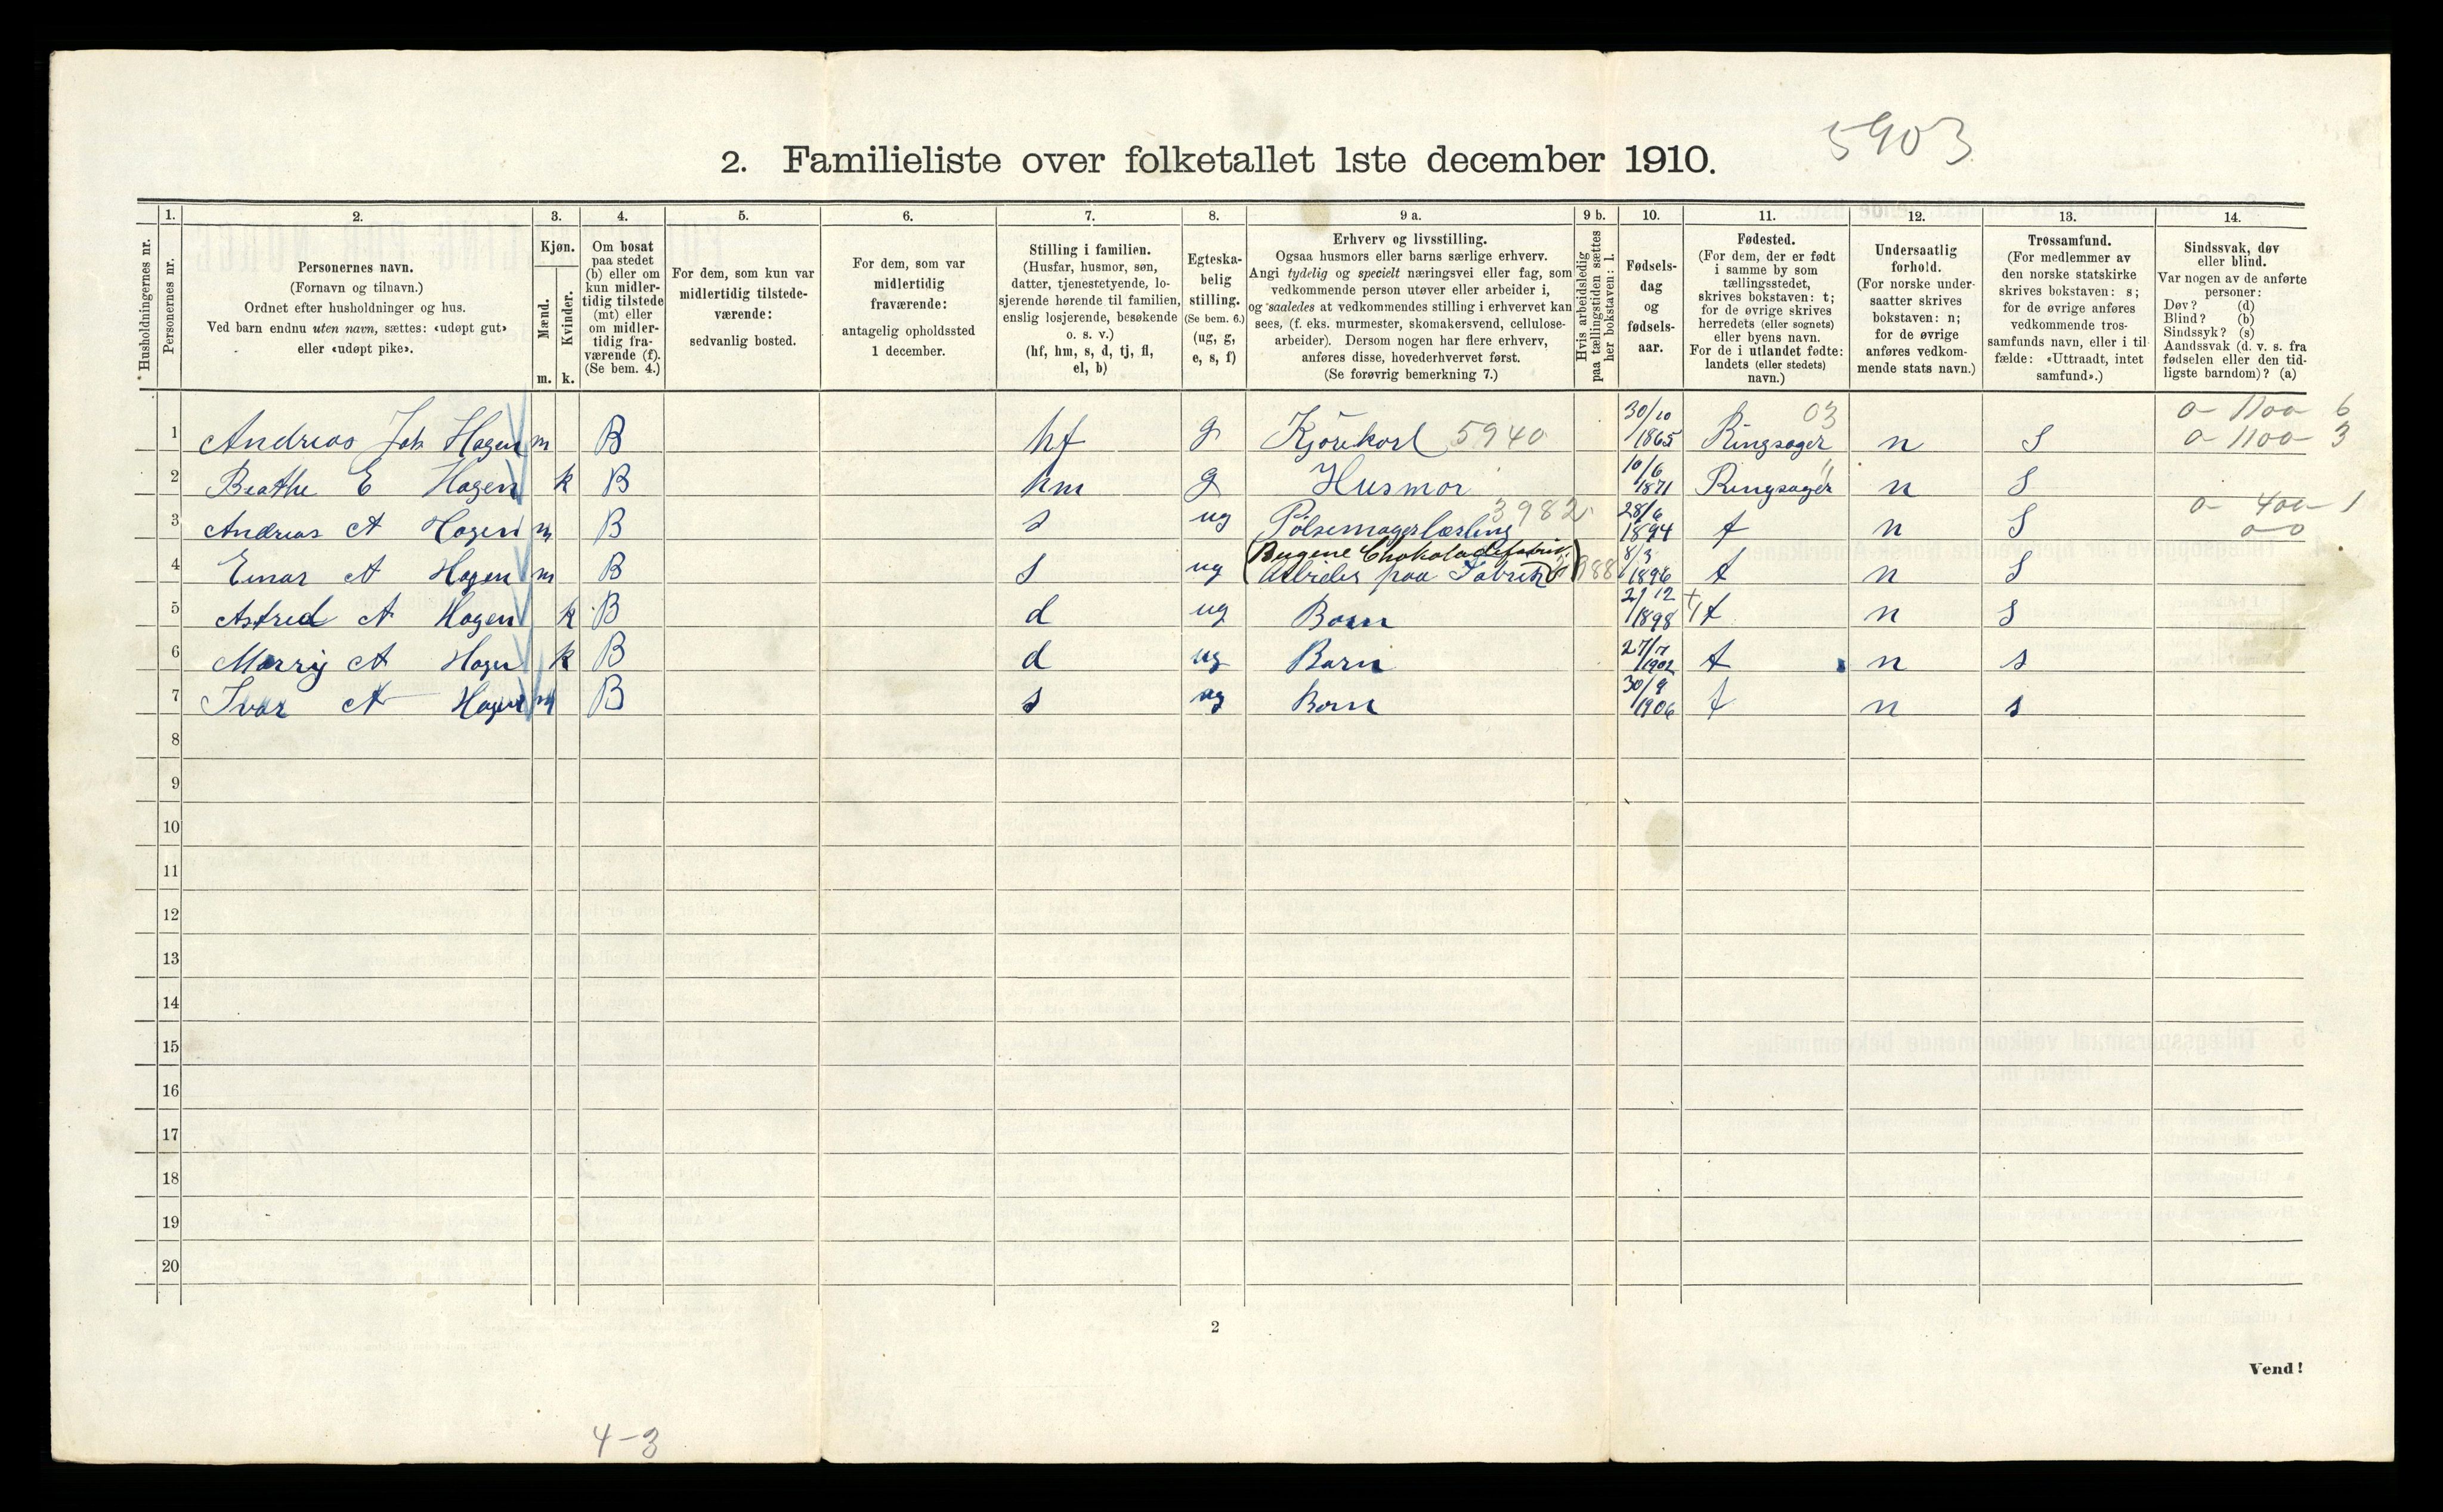 5903
2. Familieliste over folketallet 1ste december 1910.
1. 2. 3. 4. 5. 6. 7. 8. 9 a. 9 b. 10. 11. 12. 13. 14.
Husholdningernes nr.
Personernes nr.
Personernes navn.
(Fornavn og tilnavn.)
Ordnet efter husholdninger og hus.
Ved barn endnu uten navn, sættes: «udøpt gut»
eller «udøpt pike».
Kjøn.
Mænd.
Kvinder.
m. k.
Om bosat
paa stedet
(b) eller om
kun midler-
tidig tilstede
(mt) eller
om midler-
tidig fra-
værende (f).
(Se bem. 4.)
For dem, som kun var
midlertidig tilstede-
værende:
sedvanlig bosted.
For dem, som var
midlertidig
fraværende:
antagelig opholdssted
1 december.
Stilling i familien.
(Husfar, husmor, søn,
datter, tjenestetyende, lo-
sjerende hørende til familien,
enslig losjerende, besøkende
o. s. v.)
(hf, hm, s, d, tj, fl,
el, b)
Egteska-
belig
stilling.
(Se bem. 6.)
(ug, g,
e, s, f)
Erhverv og livsstilling.
Ogsaa husmors eller barns særlige erhverv.
Angi tydelig og specielt næringsvei eller fag, som
vedkommende person utøver eller arbeider i,
og saaledes at vedkommendes stilling i erhvervet kan
sees, (f. eks. murmester, skomakersvend, cellulose-
arbeider). Dersom nogen har flere erhverv,
anføres disse, hovederhvervet først.
(Se forøvrig bemerkning 7.)
Hvis arbeidsledig
paa tællingstiden sættes
her bokstaven: l.
Fødsels-
dag
og
fødsels-
aar.
Fødested.
(For dem, der er født
i samme by som
tællingsstedet,
skrives bokstaven: t;
for de øvrige skrives
herredets (eller sognets)
eller byens navn.
For de i utlandet fødte:
landets (eller stedets)
navn.)
Undersaatlig
forhold.
(For norske under-
saatter skrives
bokstaven: n;
for de øvrige
anføres vedkom-
mende stats navn.)
Trossamfund.
(For medlemmer av
den norske statskirke
skrives bokstaven: s;
for de øvrige anføres
vedkommende tros-
samfunds navn, eller i til-
fælde: «Uttraadt, intet
samfund».)
Sindssvak, døv
eller blind.
Var nogen av de anførte
personer:
Døv? (d)
Blind? (b)
Sindssyk? (s)
Aandssvak (d. v. s. fra
fødselen eller den tid-
ligste barndom)? (a)
03 0- 1100- 6
1 Andreas Joh Hagen m B hf g Kjørekarl 5940 30/10 1865 Ringsager n S 0- 1100- 3
2 Beathe E Hagen k B hm g Husmor 10/6 1871 Ringsager " n S
3982 0- 400- 1
3 Andreas A Hagen m B s ug Pølsemagerlærling 28/6 1894 t n S 0-0
Bugene Chokoladefabrik
4 Einar A Hagen m B s ug Arbider paa Fabrik 8/3 1896 t n S
5 Astrid A Hagen k B d ug Barn 21/12 1898 t n S
6 Marry A Hagen k B d ug Barn 1902 t n s
7 Ivar A Hagen m B s ug Barn 30/9 1906 t n s
8
9
10
11
12
13
14
15
16
17
18
19
20
2
Vend!
4-3